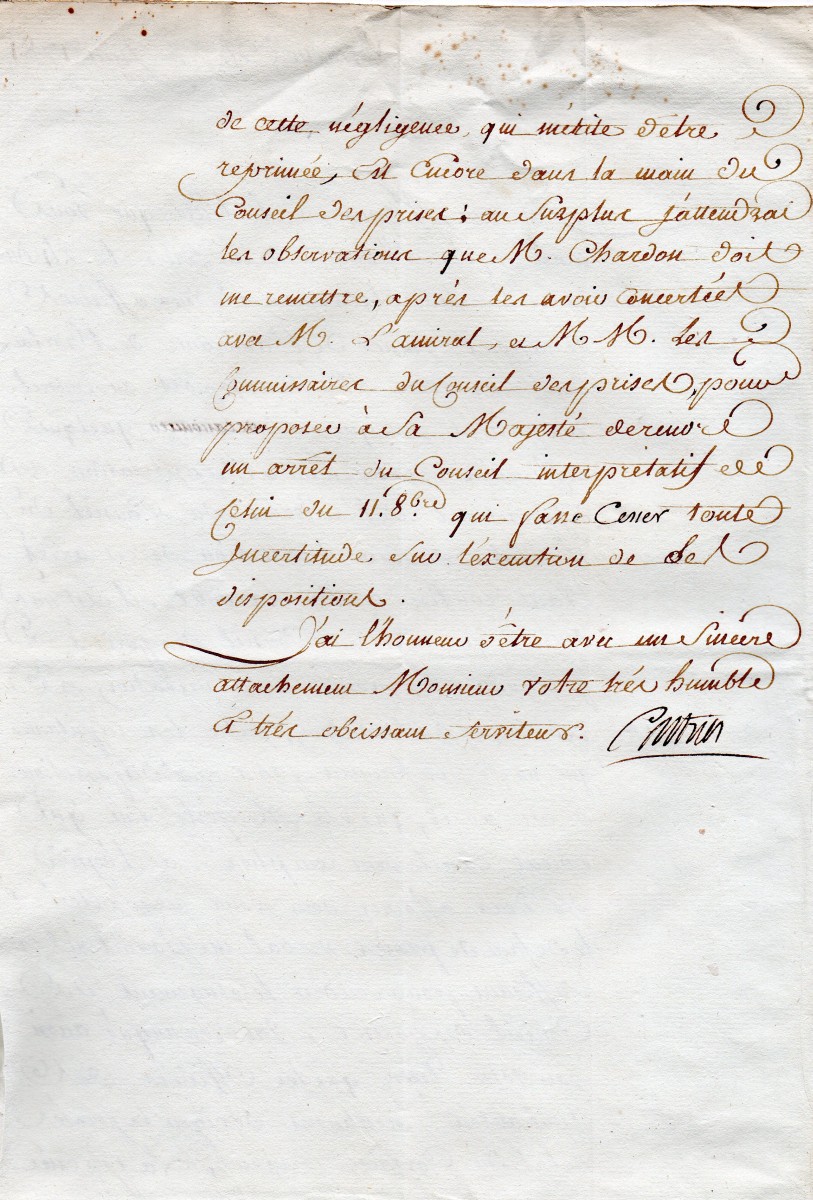 de cette négligence, qui mérite d'etre
reprimée, est Encore dans la main du
Conseil des prises; au Surplus j'attendrai
les observations que M. Chardon doit
me remettre, aprés les avoir concertées
avec M. L'amiral, et M M. Les
Commissaires du Conseil des prises, pour
proposer à Sa Majesté de rendre
un arrêt du Conseil interprétatif de
Celui du 11. 8.bre qui fasse Cesser toute
Incertitude sur l'éxecution de Ses
dispositions.
J'ai l'honneur d'être avec un Sincere
attachement Monsieur votre trés humble
et trés obeissant serviteur. Castries